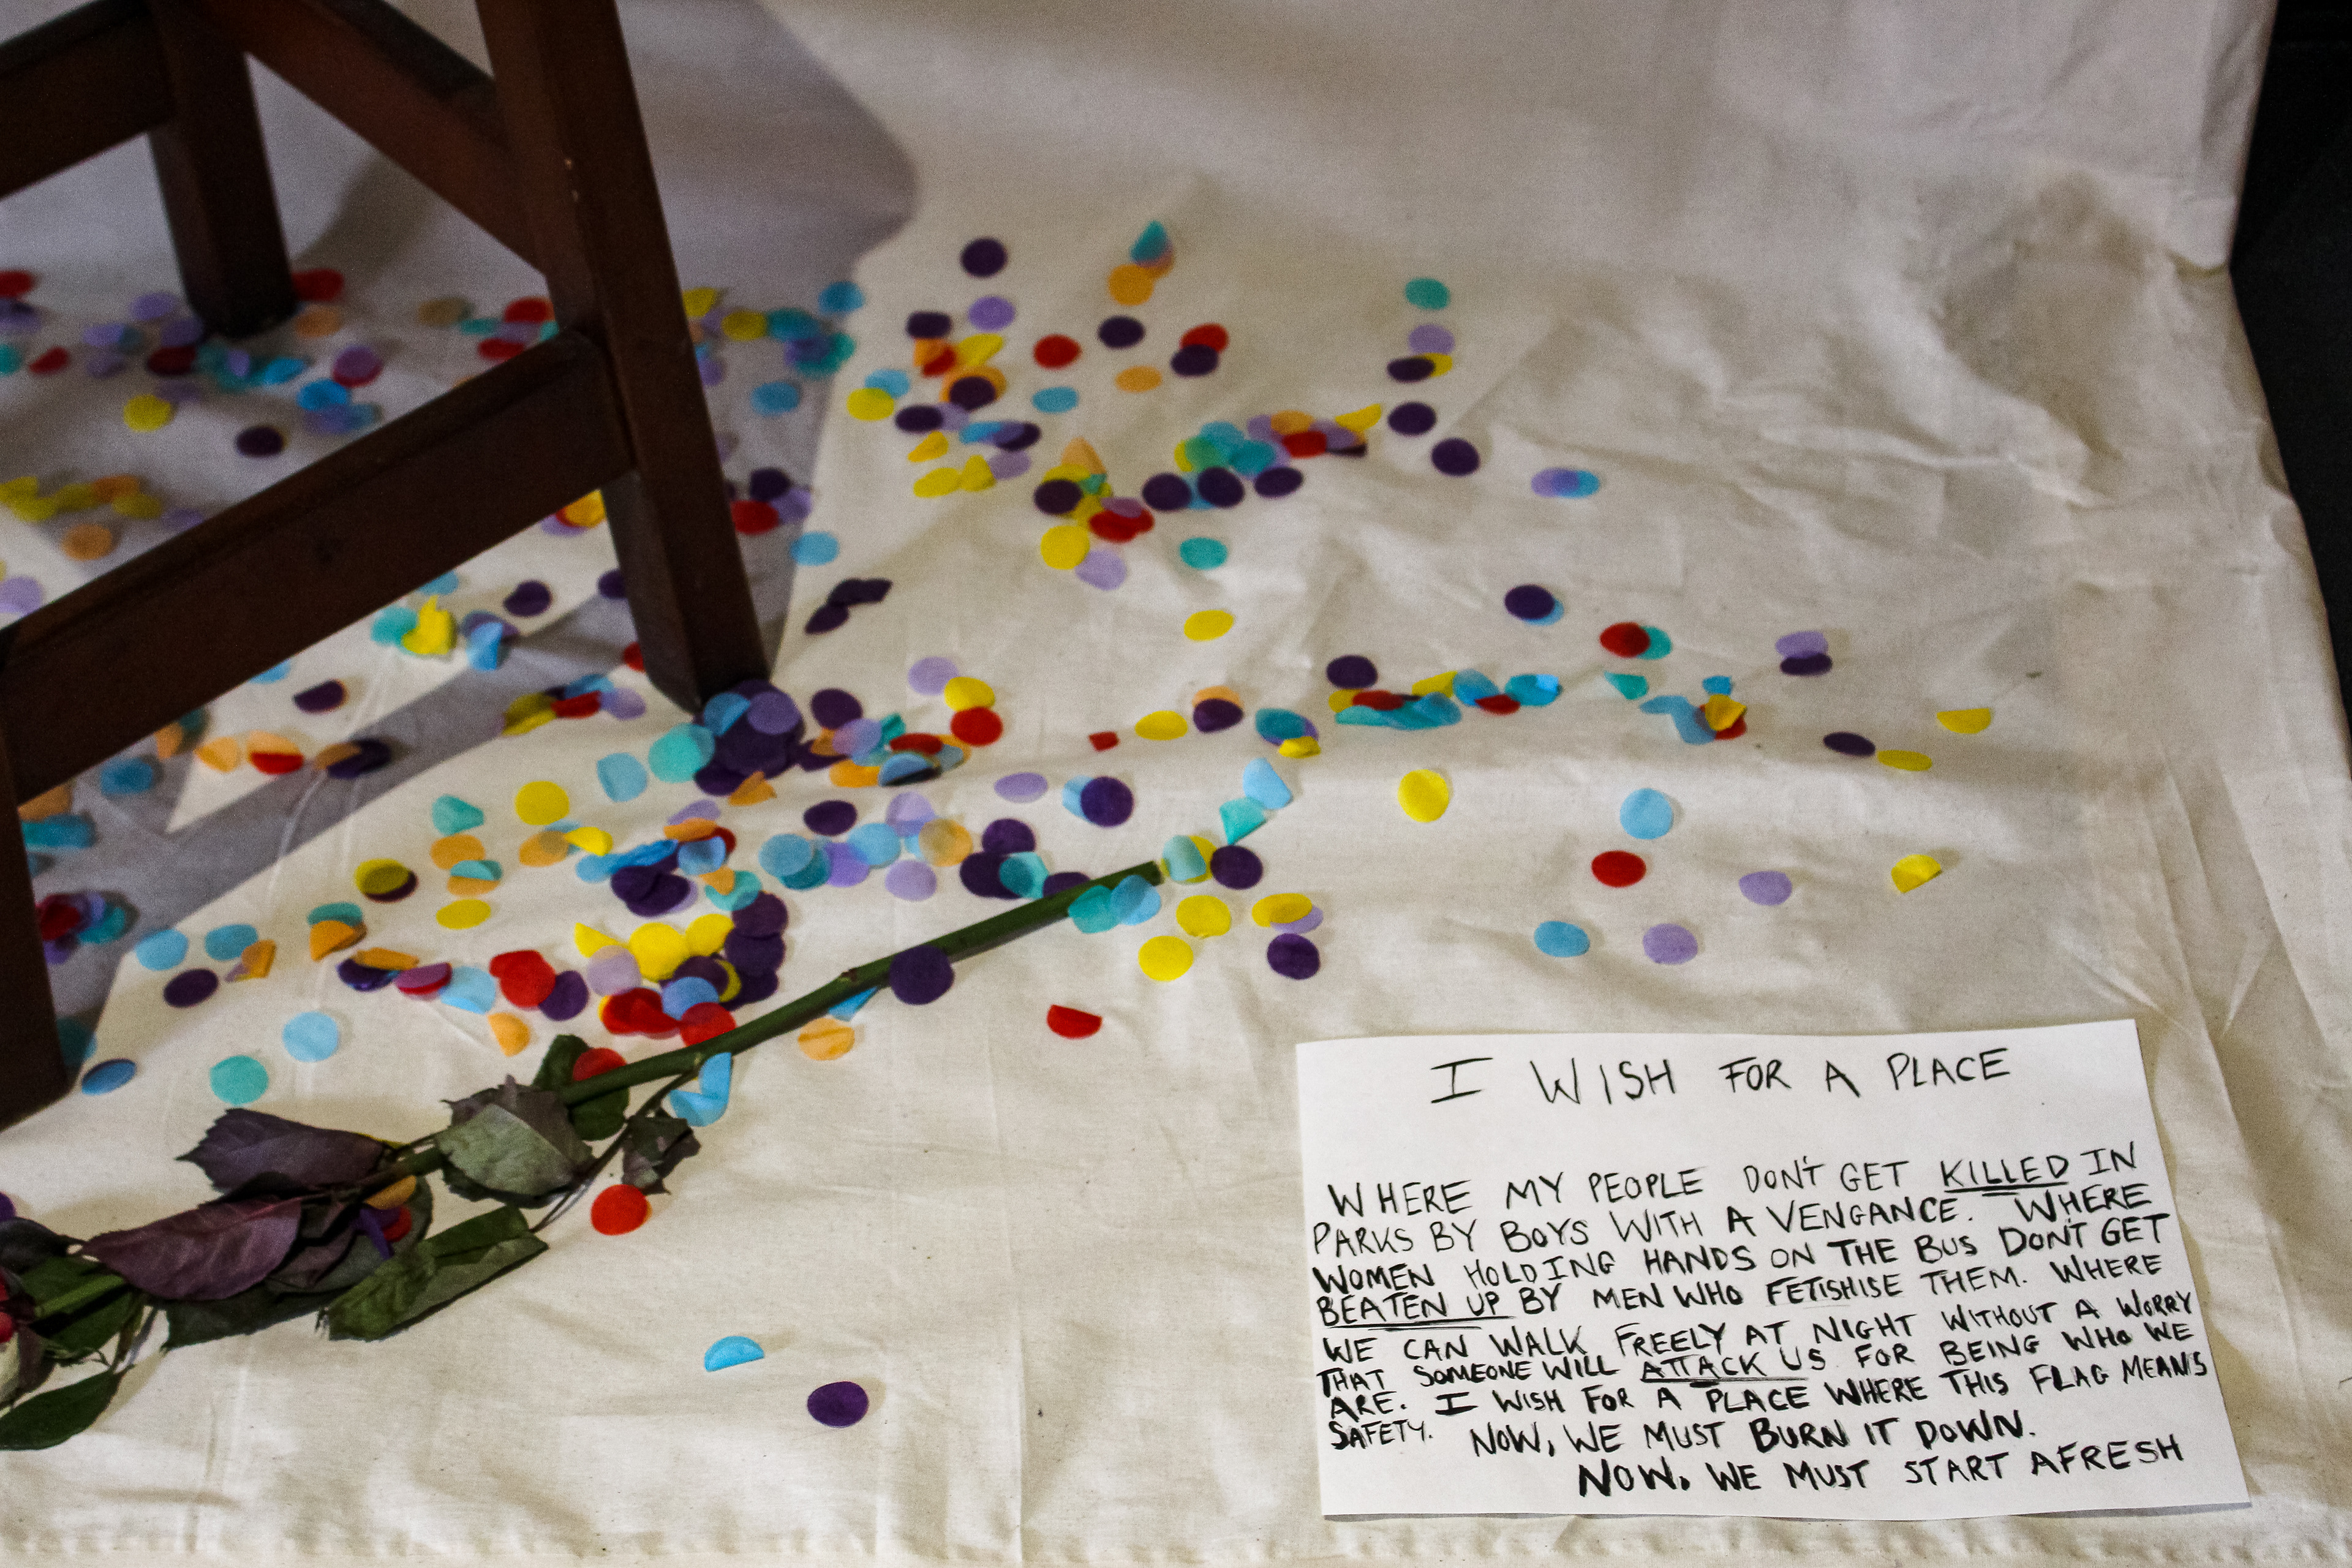 I WISH FOR A PLACE
WHERE MY PEOPLE DON'T GET KILLED IN
PARKS BY BOYS WITH A VENGANCE. WHERE
WOMEN HOLDING HANDS ON THE BUS DON'T GET
BEATEN UP BY MEN WHO FETISHISE THEM. WHERE
WE CAN WALK FREELY AT NIGHT WITHOUT A WORRY
THAT SOMEONE WILL ATTACK US FOR BEING WHO WE
ARE. I WISH FOR A PLACE WHERE THIS FLAG MEANS
SAFETY. NOW, WE MUST BURN IT DOWN.
NOW, WE MUST START AFRESH